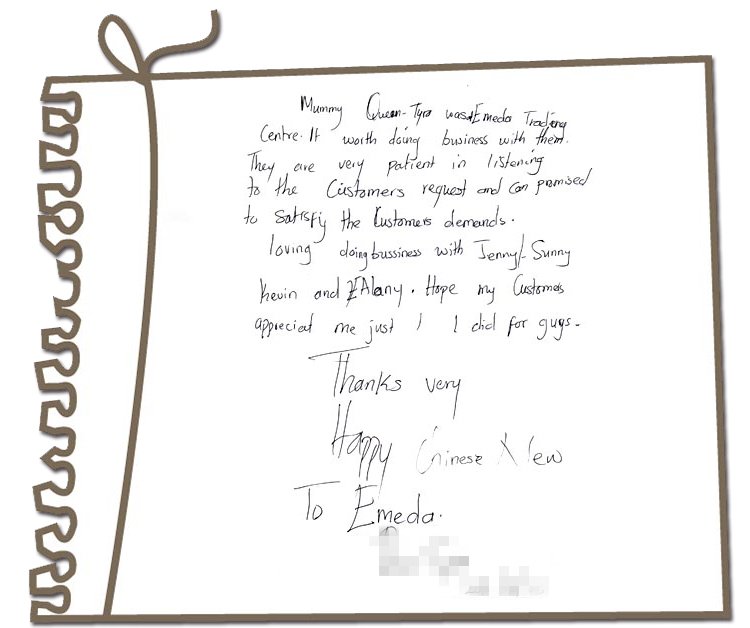 Mummy Queen-Tyra was Emeda Trading
Centre. It worth doing business with them.
They are very patient in listening
to the Customers request and can promised
to satisfy the Customers demands.
loving doing bussiness with Jenny/Sunny
Kevin and Alany. Hope my Customers
appreciat me just I did for guys.
Thanks very
Happy Chinese New
To Emeda.